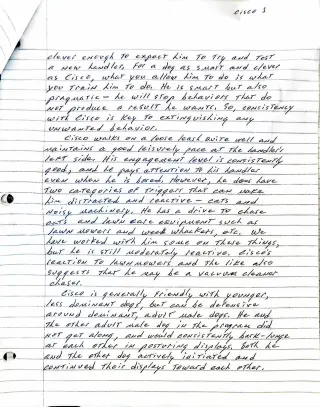 CISCO 3
clever enough to expect him to try and test
a new handler. For a dog as smart and clever
as Cisco, what you allow him to do is what
you train him to do. He is smart but also
pragmatic - he will stop behaviors that do
not produce a result he wants. So, consistency
with Cisco is key to extinguishing any
unwanted behavior.
Cisco walks on a loose leash quite well and
maintains a good leisurely pace at the handler's
left side. His engagement level is consistently
good, and he pays attention to his handler
even when he is bored. However, he does have
two categories of triggers that can make
him distracted and reactive - cats and
noisy machinery. He has a drive to chase
cats and lawn care equipment such as
lawn mowers and weed whackers, etc. We
have worked with him some on these things,
but he is still moderately reactive. Cisco's
reaction to lawnmowers and the like also
suggests that he may be a vacuum cleaner
chaser.
Cisco is generally friendly with younger,
less dominant dogs, but can be defensive
around dominant, adult male dogs. He and
the other adult male dog in the program did
not get along, and would consistently bark-lunge
at each other in posturing displays. Both he
and the other dog actively initiated and
continued their displays toward each other.